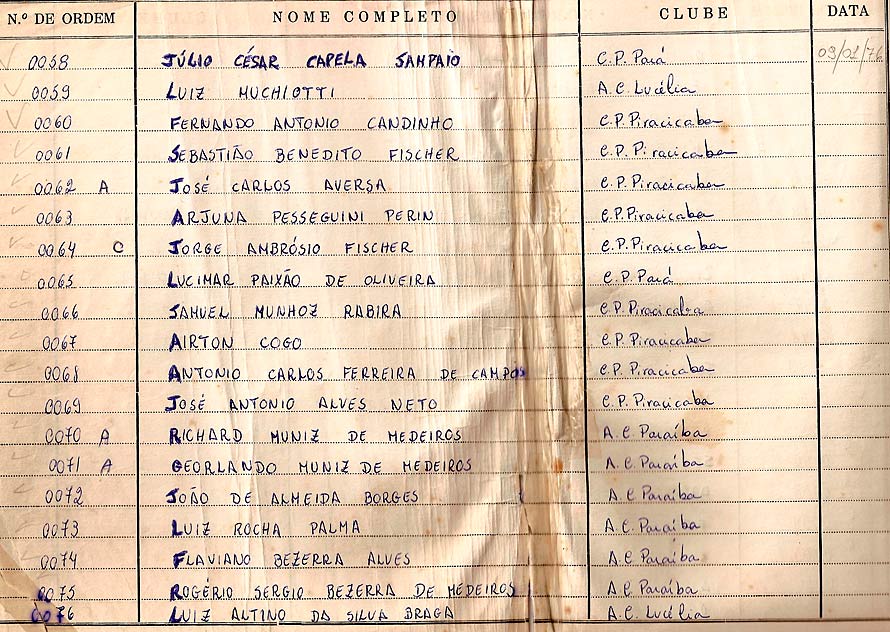 N.º DE ORDEM NOME COMPLETO CLUBE DATA
0058 JÚLIO CÉSAR CAPELA SAMPAIO C.P. Pará 09/02/76
0059 LUIZ MUCHIOTTI A.C. Lucélia
0060 FERNANDO ANTONIO CANDINHO C.P. Piracicaba
0061 SEBASTIÃO BENEDITO FISCHER C.P. Piracicaba
0062 A JOSÉ CARLOS AVERSA C.P. Piracicaba
0063 ARJUNA PESSEGUINI PERIN C.P. Piracicaba
0064 C JORGE AMBRÓSIO FISCHER C.P. Piracicaba
0065 LUCIMAR PAIXÃO DE OLIVEIRA C.P. Pará
0066 SAMUEL MUNHOZ RABIRA C.P. Piracicaba
0067 AIRTON COGO C.P. Piracicaba
0068 ANTONIO CARLOS FERREIRA DE CAMPOS C.P. Piracicaba
0069 JOSÉ ANTONIO ALVES NETO C.P. Piracicaba
0070 A RICHARD MUNIZ DE MEDEIROS A.C. Paraíba
0071 A GEORLANDO MUNIZ DE MEDEIROS A.C. Paraíba
0072 JOÃO DE ALMEIDA BORGES A.C. Paraíba
0073 LUIZ ROCHA PALMA A.C. Paraíba
0074 FLAVIANO BEZERRA ALVES A.C. Paraíba
0075 ROGÉRIO SERGIO BEZERRA DE MEDEIROS A.C. Paraíba
0076 LUIZ ALTINO DA SILVA BRAGA A.C. Lucélia